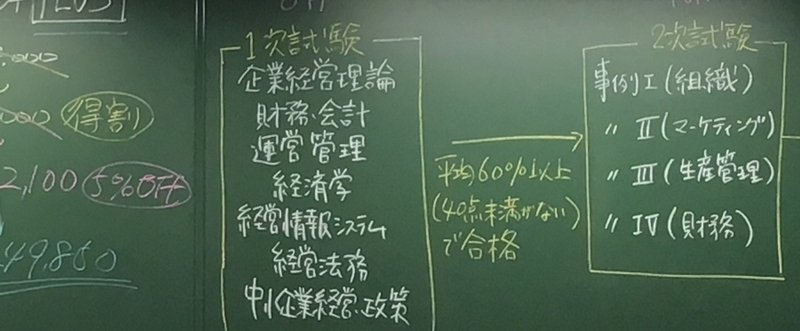 得割
2,100 5%OFF
49,850
1次試験
企業経営理論
財務・会計
運営管理
経済学
経営情報システム
経営法務
中小企業経営・政策
平均60%以上
(40点未満がない)
で合格
2次試験
事例I(組織)
〃 II(マーケティング)
〃 III(生産管理)
〃 IV(財務)